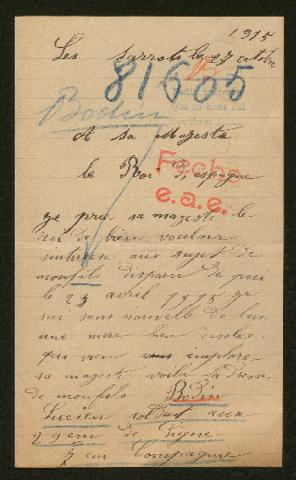 1915
Les Sarrots le 27 octobre
81605
Bodin
A sa Magesté
le Roi D'espagne
Fecha
e.a.e.
ge prie sa magesté le
roi de bien vouloir
au suget de
mon fils disparu De puis
le 23 avril 1915 ge
sui sans nouvelle De lui
une mere bien
qui vien vous implore
sa magesté voila
de mon fils Bodin
Lucien soldat aux
em de ligne
em Compagnie